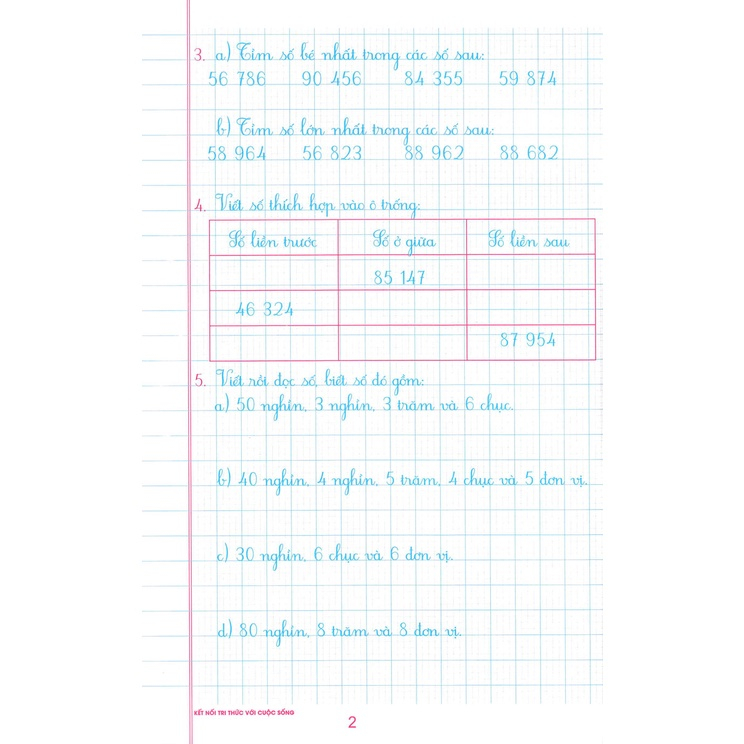 3. a) Tìm số bé nhất trong các số sau:
56 786 90 456 84 355 59 874
b) Tìm số lớn nhất trong các số sau:
58 964 56 823 88 962 88 682
4. Viết số thích hợp vào ô trống:
Số liền trước Số ở giữa Số liền sau
85 147
46 324
87 954
5. Viết rồi đọc số, biết số đó gồm:
a) 50 nghìn, 3 nghìn, 3 trăm và 6 chục.
b) 40 nghìn, 4 nghìn, 5 trăm, 4 chục và 5 đơn vị.
c) 30 nghìn, 6 chục và 6 đơn vị.
d) 80 nghìn, 8 trăm và 8 đơn vị.
KẾT NỐI TRI THỨC VỚI CUỘC SỐNG
2